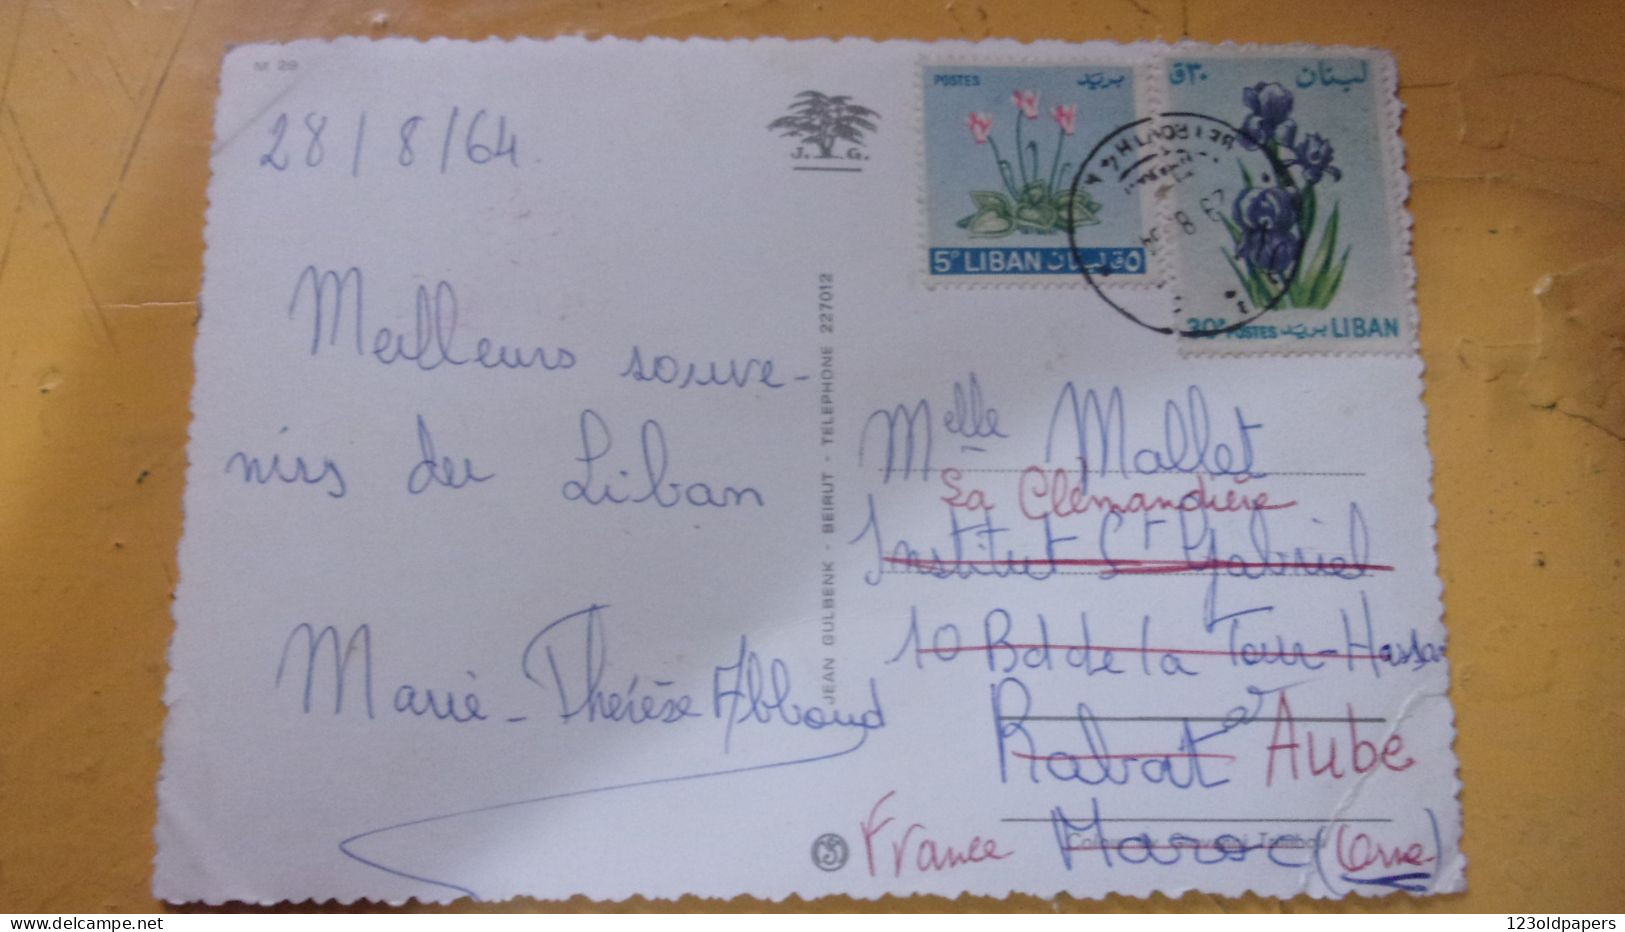 M 29
28/8/64
J. G.
Meilleurs souve-
nirs du Liban
Marie-Thérèse Abboud
JEAN GULBENK - BEIRUT - TELEPHONE 227012
POSTES بريد
5P LIBAN لبنان ٥ق
٣٠ق لبنان
30P POSTES بريد LIBAN
BEYROUTH
Melle Mallet
La Clémandière
Institut St Gabriel
10 Bd de la Tour-Hassan
Rabat à Aube
France Maroc (Orne)
123oldpapers